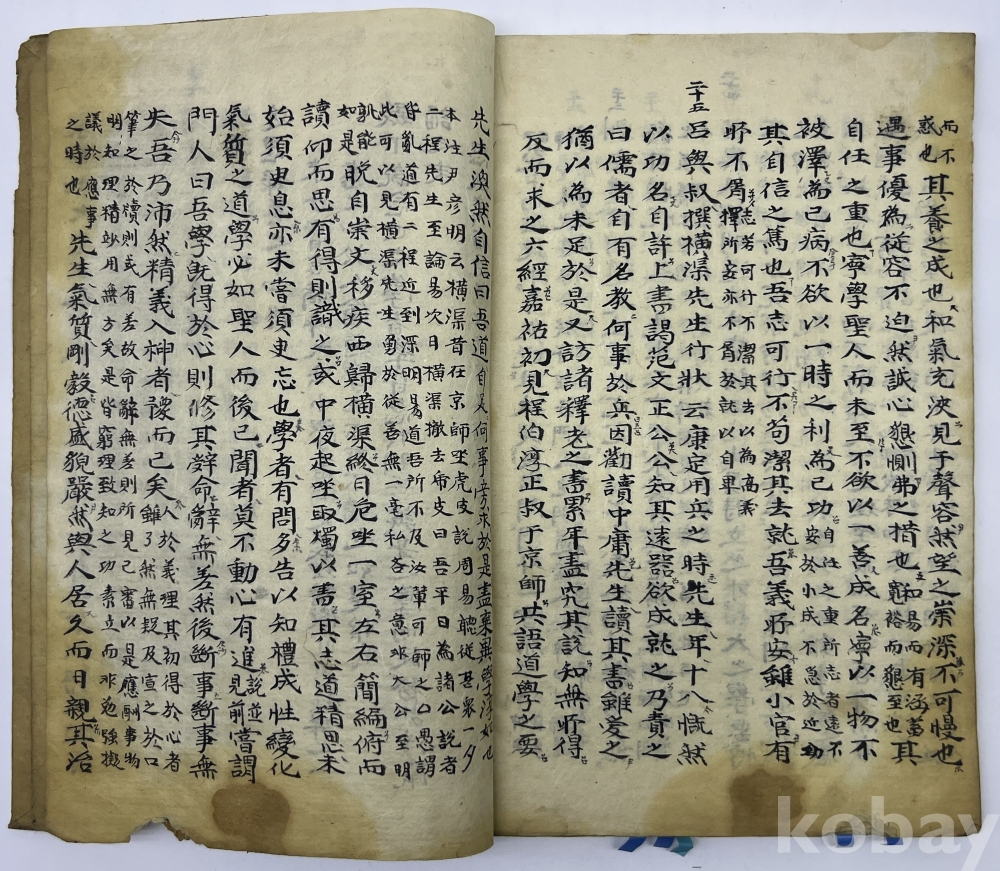 而不
惑也 其養之成也和氣充浹見于聲容然望之崇深不可慢也
遇事優為從容不迫然誠心懇惻弗之措也 和易而有涵蓄
寬裕而懇至也 其
自任之重也寧學聖人而未至不欲以一善成名寧以一物不
被澤為己病不欲以一時之利為己功 自任之重所志者遠不
安於小成不急於近功
其自信之篤也吾志可行不苟潔其去就吾義所安雖小官有
所不屑 志若可行不潔其去以為高義
擇所安亦不屑於就以自卑
二十五
呂與叔撰橫渠先生行狀云康定用兵之時先生年十八慨然
以功名自許上書謁范文正公公知其遠器欲成就之乃責之
曰儒者自有名教何事於兵因勸讀中庸先生讀其書雖愛之
猶以為未足於是又訪諸釋老之書累年盡究其說知無所得
反而求之六經嘉祐初見程伯淳正叔于京師共語道學之要
先生渙然自信曰吾道自足何事旁求於是盡棄異學淳如也
本注尹彦明云橫渠昔在京師坐虎皮說周易聽從甚衆一夕
二程先生至論易次日橫渠撤去帋皮曰吾平日為諸公說者
皆亂道有二程近到深明易道吾所不及汝輩可師之○愚謂
此可以見橫渠先生勇於從善無一毫私吝之意非大公至明
孰能
如是 晩自崇文移疾西歸橫渠終日危坐一室左右簡編俯而
讀仰而思有得則識之或中夜起坐取燭以書其志道精思未
始須臾息亦未嘗須臾忘也學者有問多告以知禮成性變化
氣質之道學必如聖人而後已聞者莫不動心有進 說並
見前 嘗謂
門人曰吾學旣得於心則修其辭命辭無差然後斷事斷事無
失吾乃沛然精義入神者豫而已矣 人於義理其初得於心者
雖了然無疑及宣之於口
筆之於牘則或有差故命辭無差則所見已審以是應酬事物
明知理精妙用無方矣是皆窮理致知之功素立而非勉强擬
議於應事
之時也 先生氣質剛毅德盛貌嚴然與人居久而日親其治